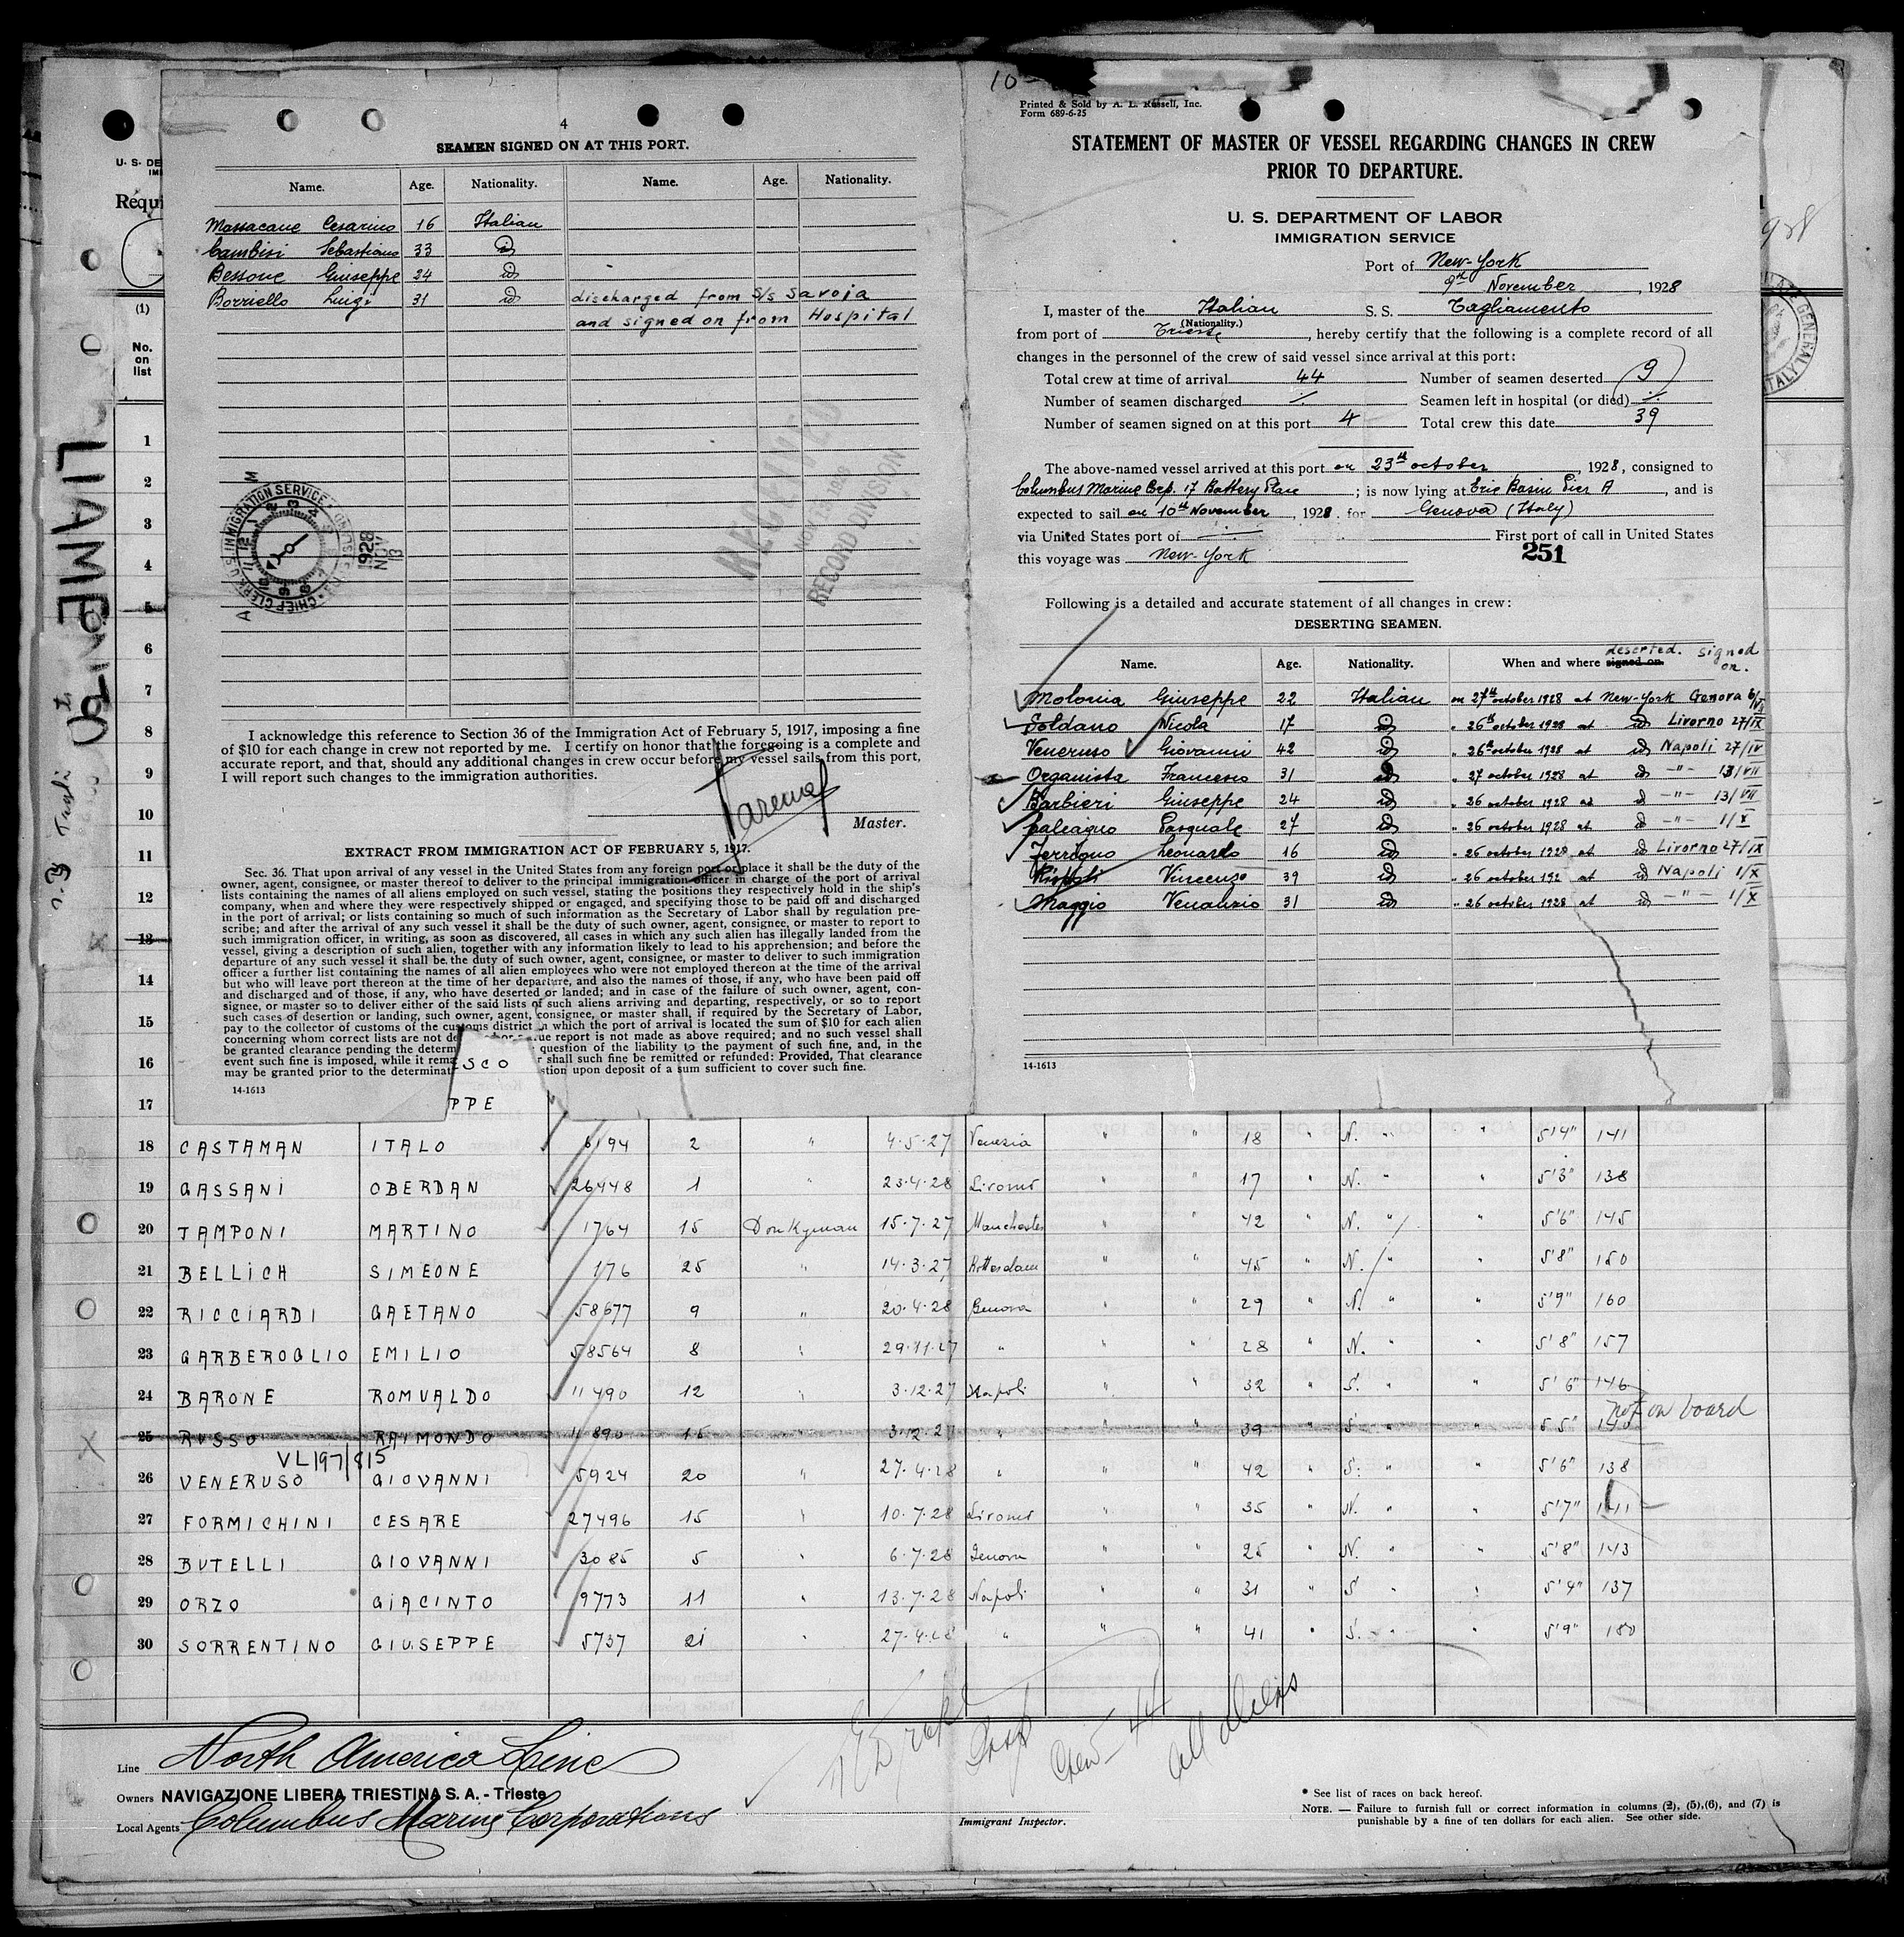 4
SEAMEN SIGNED ON AT THIS PORT.
Name. Age. Nationality. Name. Age. Nationality.
Massacane Cesarino 16 Italian
Cambisi Sebastiano 33 id
Bessone Giuseppe 24 id
Borriello Luigi 31 id discharged from S/s Savoia
and signed on from Hospital
CHIEF CLERK U.S. IMMIGRATION SERVICE
1928 NOV 13
RECEIVED
RECORD DIVISION
I acknowledge this reference to Section 36 of the Immigration Act of February 5, 1917, imposing a fine
of $10 for each change in crew not reported by me. I certify on honor that the foregoing is a complete and
accurate report, and that, should any additional changes in crew occur before my vessel sails from this port,
I will report such changes to the immigration authorities.
Master.
EXTRACT FROM IMMIGRATION ACT OF FEBRUARY 5, 1917.
Sec. 36. That upon arrival of any vessel in the United States from any foreign port or place it shall be the duty of the
owner, agent, consignee, or master thereof to deliver to the principal immigration officer in charge of the port of arrival
lists containing the names of all aliens employed on such vessel, stating the positions they respectively hold in the ship's
company, when and where they were respectively shipped or engaged, and specifying those to be paid off and discharged
in the port of arrival; or lists containing so much of such information as the Secretary of Labor shall by regulation pre-
scribe; and after the arrival of any such vessel it shall be the duty of such owner, agent, consignee, or master to report to
such immigration officer, in writing, as soon as discovered, all cases in which any such alien has illegally landed from the
vessel, giving a description of such alien, together with any information likely to lead to his apprehension; and before the
departure of any such vessel it shall be the duty of such owner, agent, consignee, or master to deliver to such immigration
officer a further list containing the names of all alien employees who were not employed thereon at the time of the arrival
but who will leave port thereon at the time of her departure, and also the names of those, if any, who have been paid off
and discharged and of those, if any, who have deserted or landed; and in case of the failure of such owner, agent, con-
signee, or master so to deliver either of the said lists of such aliens arriving and departing, respectively, or so to report
such cases of desertion or landing, such owner, agent, consignee, or master shall, if required by the Secretary of Labor,
pay to the collector of customs of the customs district in which the port of arrival is located the sum of $10 for each alien
concerning whom correct lists are not de ue report is not made as above required; and no such vessel shall
be granted clearance pending the determ question of the liability to the payment of such fine, and, in the
event such fine is imposed, while it rema r shall such fine be remitted or refunded: Provided, That clearance
may be granted prior to the determinat stion upon deposit of a sum sufficient to cover such fine.
14-1613
10-
Printed & Sold by A. L. Russell, Inc.
Form 689-6-25
STATEMENT OF MASTER OF VESSEL REGARDING CHANGES IN CREW
PRIOR TO DEPARTURE.
U. S. DEPARTMENT OF LABOR
IMMIGRATION SERVICE
Port of New-York
9th November, 1928
I, master of the Italian S. S. Tagliamento
(Nationality.)
from port of Trieste, hereby certify that the following is a complete record of all
changes in the personnel of the crew of said vessel since arrival at this port:
Total crew at time of arrival 44 Number of seamen deserted 9
Number of seamen discharged ./. Seamen left in hospital (or died) ./.
Number of seamen signed on at this port 4 Total crew this date 39
The above-named vessel arrived at this port on 23th october, 1928, consigned to
Columbus Marine Corp. 17 Battery Place; is now lying at Eric Basin Pier A, and is
expected to sail on 10th November, 1928. for Genova (Italy)
via United States port of First port of call in United States
this voyage was New-York 251
Following is a detailed and accurate statement of all changes in crew:
DESERTING SEAMEN.
Name. Age. Nationality. When and where signed on. deserted. signed on.
Molonia Giuseppe 22 Italian on 27th october 1928 at New-York Genova 6/VI
Soldano Nicola 17 id " 26th october 1928 at id Livorno 27/IX
Veneruso Giovanni 42 id " 26th october 1928 at id Napoli 27/IV
Organista Francesco 31 id " 27 october 1928 at id -"- 13/VII
Barbieri Giuseppe 24 id " 26 october 1928 at id -"- 13/VII
Calcagno Pasquale 27 id " 26 october 1928 at id -"- 1/X
Ferrigno Leonardo 16 id " 26 october 1928 at id Livorno 27/IX
Rispoli Vincenzo 39 id " 26 october 192 at id Napoli 1/X
Maggio Venanzio 31 id " 26 october 1928 at id -"- 1/X
14-1613
U. S. DE
Requi
(1)
No. on list
1
2
3
4
5
6
7
8
9
10
11
12
13
14
15
16 ESCO
17 PPE
18 CASTAMAN ITALO 6194 2 " 4.5.27 Venezia " " 18 N. " " 5'4" 141
19 GASSANI OBERDAN 26448 1 " 23.4.28 Livorno " " 17 N. " " 5'3" 138
20 JAMPONI MARTINO 1764 15 Donkyman 15.7.27 Manchester " " 42 " N. " " 5'6" 145
21 BELLICH SIMEONE 176 25 " 14.3.27 Rotterdam " " 45 " N. " " 5'8" 150
22 RICCIARDI GAETANO 58677 9 " 20.4.28 Genova " " 29 " N. " " 5'9" 160
23 GARBEROGLIO EMILIO 58564 8 " 29.11.27 " " " 28 " N. " " 5'8" 157
24 BARONE ROMUALDO 11490 12 " 3.12.27 Napoli " " 32 " S. " " 5'6" 146
25 RUSSO RAIMONDO 11890 15 " 3.12.27 " " " 39 " S " " 5'5" 140 not on board
VL197/815
26 VENERUSO GIOVANNI 5924 20 " 27.4.28 " " " 42 " S. " " 5'6" 138
27 FORMICHINI CESARE 27496 15 " 10.7.28 Livorno " " 35 " N. " " 5'7" 141
28 BUTELLI GIOVANNI 3085 5 " 6.7.28 Genova " " 25 " N. " " 5'8" 143
29 ORZO GIACINTO 9773 11 " 13.7.28 Napoli " " 31 " S " " 5'4" 137
30 SORRENTINO GIUSEPPE 5737 21 " 27.4.28 " " " 41 " S. " " 5'9" 180
Crew - 44
all aliens
Line North America Line
Owners NAVIGAZIONE LIBERA TRIESTINA S. A. - Trieste
Local Agents Columbus Marine Corporations
Immigrant Inspector.
* See list of races on back hereof.
NOTE. — Failure to furnish full or correct information in columns (2), (5),(6), and (7) is
punishable by a fine of ten dollars for each alien. See other side.